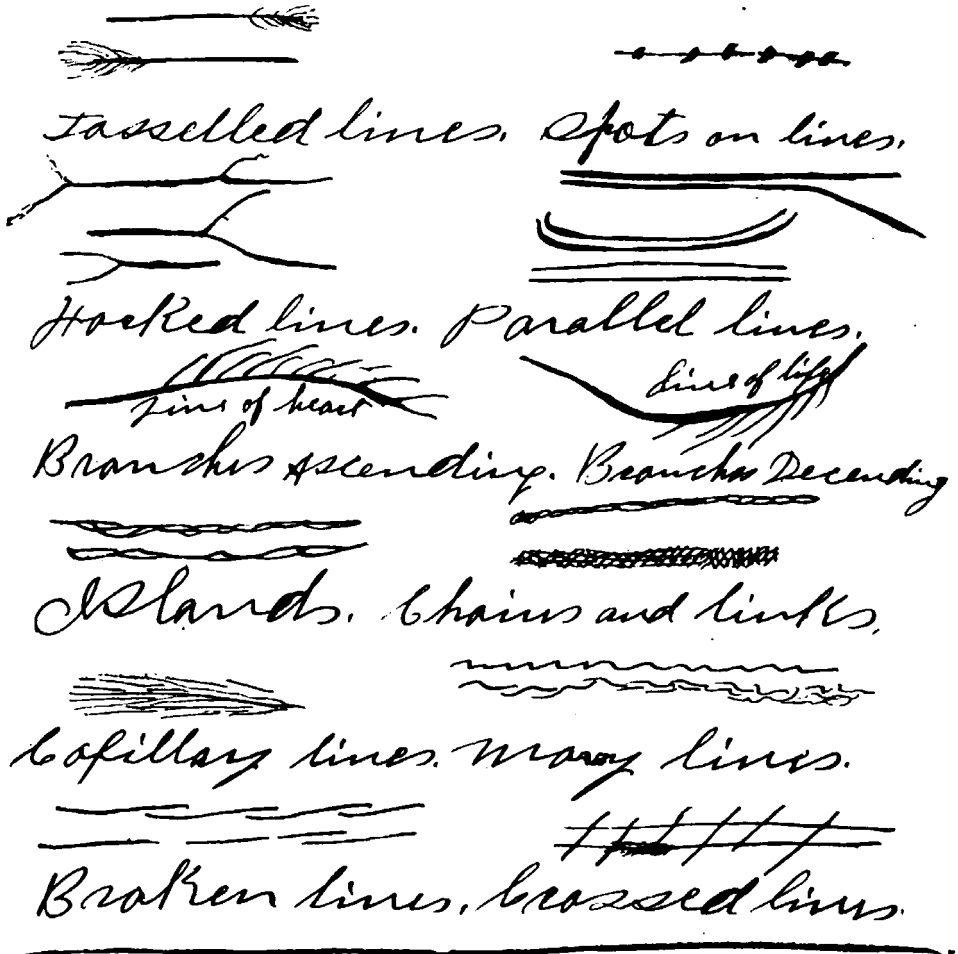 Tasselled lines. Spots on lines.
Hooked lines. Parallel lines.
Line of heart
Line of life
Branches Ascending. Branches Decending
Islands. Chains and links.
Capillary lines. Wavy lines.
Broken lines. Crossed lines.